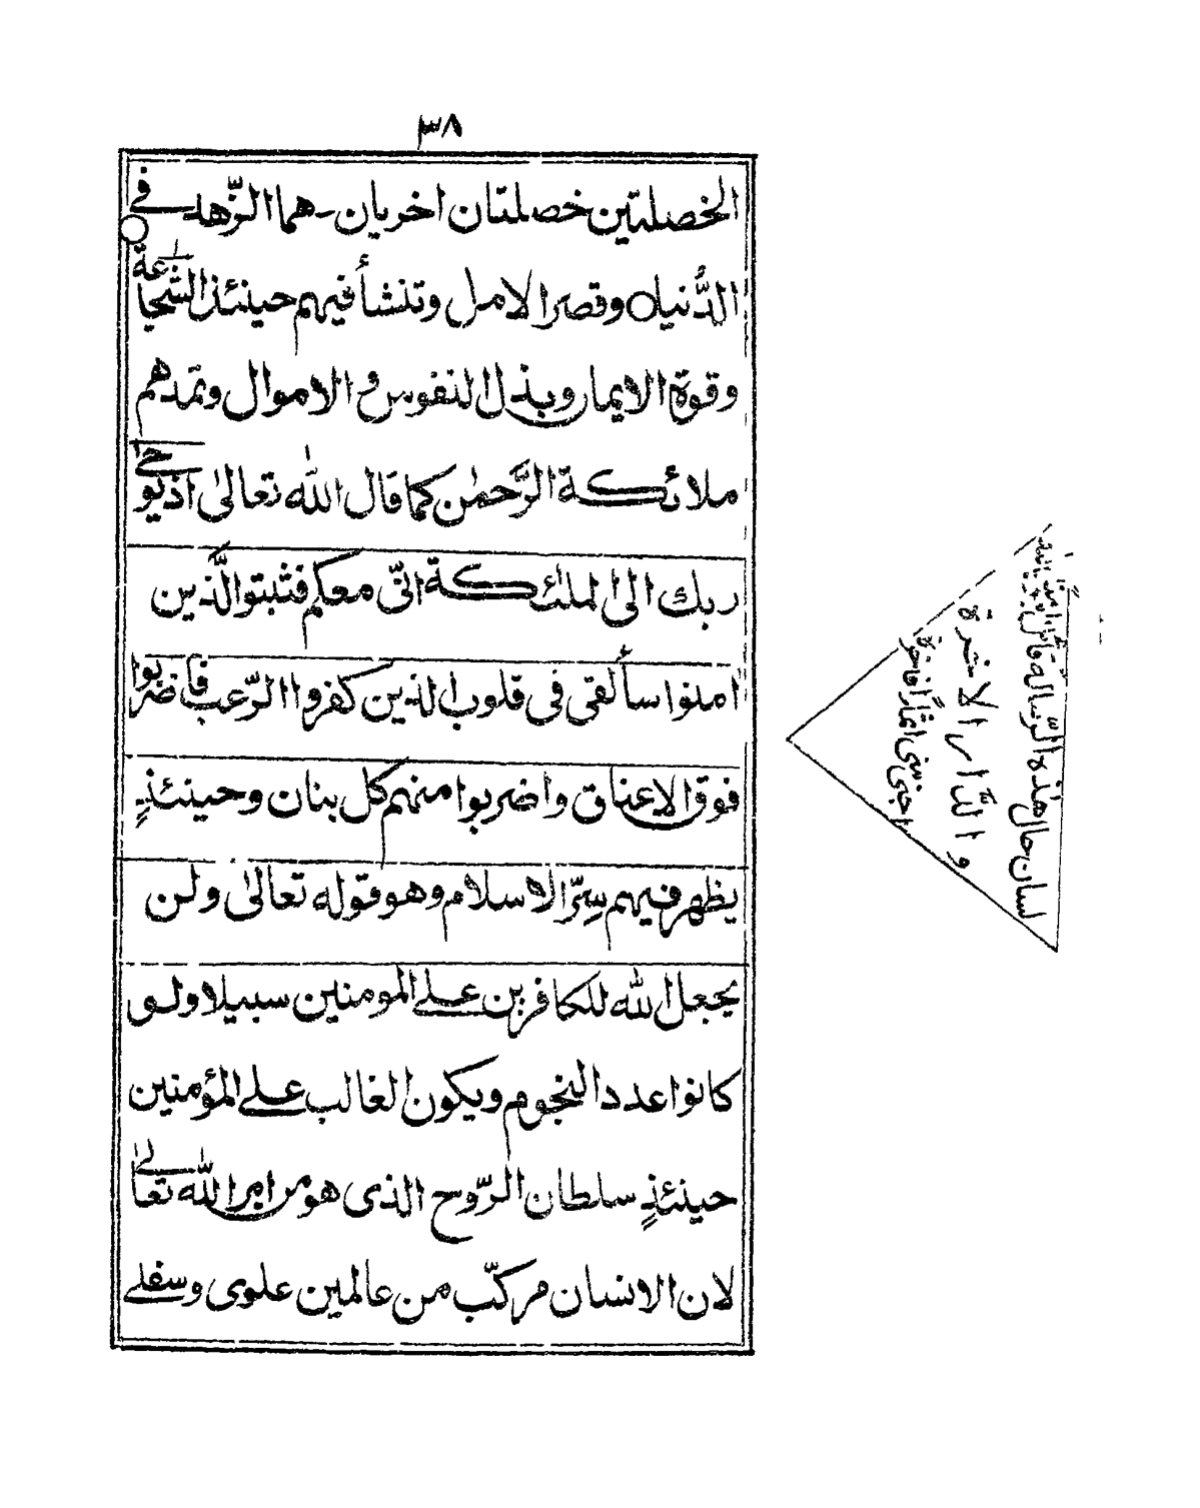 ٣٨
الخصلتين خصلتان اخريان۔ هما الزّهد في
الدُّنيا وقصر الامل وتنشأ فيهم حينئذ الشّجاعة
وقوة الايمان وبذل النفوس و الاموال وتمدهم
ملائكة الرَّحمٰن كما قال اللّٰه تعالىٰ اذ يوحي
ربك الى الملئكة انّى معكم فثبتوا الَّذين
امنوا سألقى فى قلوب الذين كفروا الرّعب فاضربوا
فوق الاعناق واضربوا منهم كل بنان وحينئذٍ
يظهر فيهم سِرّ الاسلام وهو قوله تعالىٰ ولن
يجعل اللّٰه للكافرين على المومنين سبيلا ولو
كانوا عدد النجوم ويكون الغالب على المؤمنين
حينئذٍ سلطان الرّوح الذى هو من امر اللّٰه تعالىٰ
لان الانسان مركّب من عالمين علوى وسفلى
لسان حال هٰذه الرّسالة قائل
والدَّار الاخرة
اجنى منى اثمارًا فاخرة